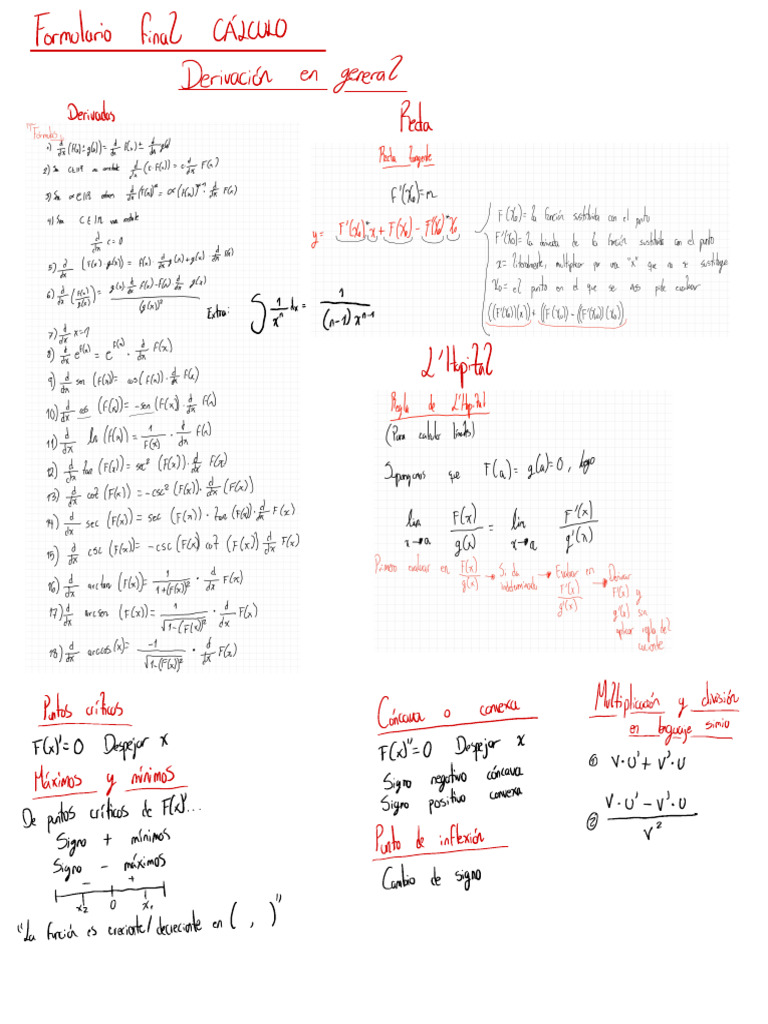 Formulario final CÁLCULO
Derivación en general
Derivadas
"Formulas"
1) d/dx (F(x) ± g(x)) = d/dx F(x) ± d/dx g(x)
2) Sea C∈IR d/dx (c·F(x)) = c d/dx F(x)
3) Sea α∈IR d/dx (F(x))^α = α(F(x))^α-1 · d/dx F(x)
4) Sea C∈IR una
d/dx c = 0
5) d/dx (F(x)·g(x)) = F(x)· d/dx g(x) + g(x)· d/dx F(x)
6) d/dx (F(x)/g(x)) = (g(x) d/dx F(x) - F(x) d/dx g(x)) / (g(x))²
7) d/dx x = 1
8) d/dx e^F(x) = e^F(x) · d/dx F(x)
9) d/dx sen (F(x)) = cos (F(x)) · d/dx F(x)
10) d/dx cos (F(x)) = -sen (F(x)) d/dx F(x)
11) d/dx ln (F(x)) = 1/F(x) · d/dx F(x)
12) d/dx tan (F(x)) = sec² (F(x)) · d/dx F(x)
13) d/dx cot (F(x)) = -csc² (F(x)) · d/dx (F(x))
14) d/dx sec (F(x)) = sec (F(x)) · tan (F(x)) · d/dx F(x)
15) d/dx csc (F(x)) = -csc (F(x)) cot (F(x)) d/dx F(x)
16) d/dx arctan (F(x)) = 1/(1+(F(x))²) · d/dx F(x)
17) d/dx arcsen (F(x)) = 1/√(1-(F(x))²) · d/dx F(x)
18) d/dx arccos (x) = -1/√(1-(F(x))²) · d/dx F(x)
Extra: ∫ 1/x^n dx = 1/((n-1) x^n-1)
Recta
Recta tangente
F'(x₀) = m
y = F'(x₀)*x + F(x₀) - F'(x₀)*x₀
F(x₀) = la función sustituida con el punto
F'(x₀) = la derivada de la función sustituida con el punto
x = literalmente, multiplicar por una "x" que no se sustituye
x₀ = el punto en el que se nos pide evaluar
((F'(x₀))(x)) + (F(x₀)) - ((F'(x₀))(x₀))
L'Hopital
Regla de L'Hopital
(Para calcular límites)
Supongamos que F(a) = g(a) = 0, luego
lim x→a F(x)/g(x) = lim x→a F'(x)/g'(x)
Primero evaluar en F(x)/g(x) → Si da indeterminado → Evaluar en F'(x)/g'(x) → Derivar F(x) y g(x) sin aplicar regla del cociente
Puntos críticos
F(x)' = 0 Despejar x
Máximos y mínimos
De puntos críticos de F(x)'...
Signo + mínimos
Signo - máximos
- +
x₂ 0 x₁
"La función es creciente/decreciente en ( , )"
Cóncava o convexa
F(x)'' = 0 Despejar x
Signo negativo cóncava
Signo positivo convexa
Punto de inflexión
Cambio de signo
Multiplicación y división
en lenguaje simio
① V·U' + V'·U
② (V·U' - V'·U) / V²